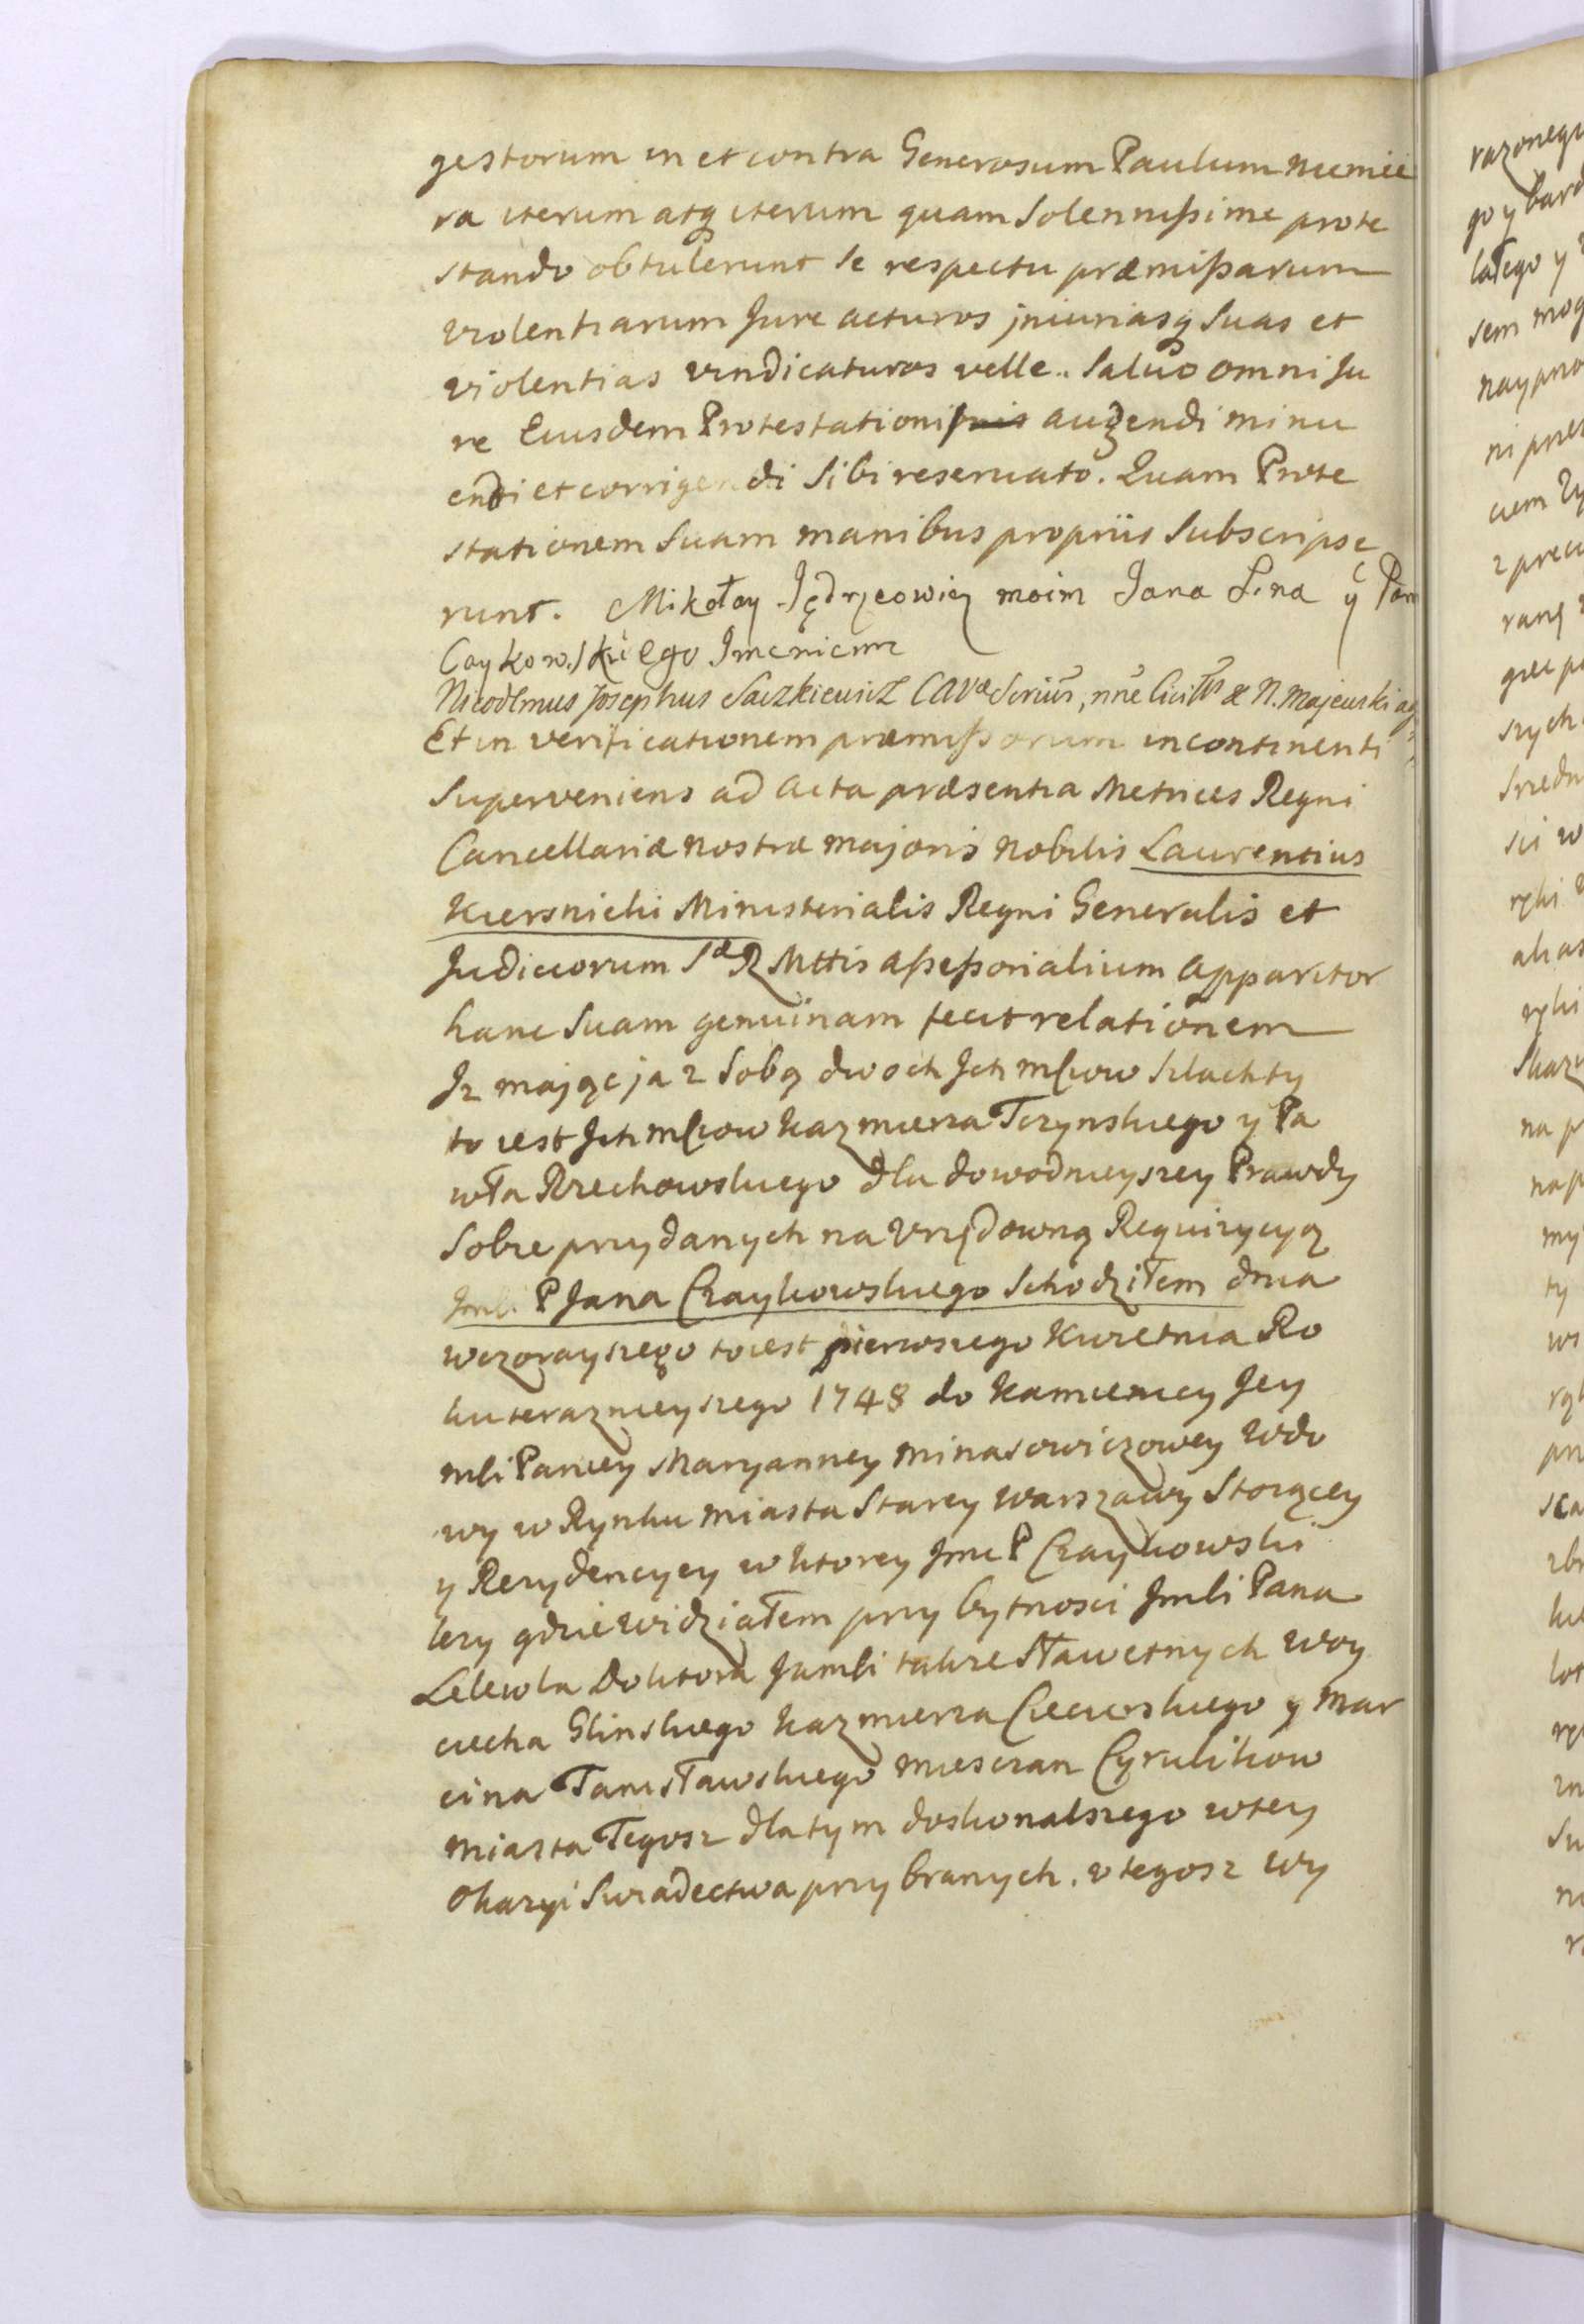 gestorum in et contra Generosum Paulum Niemie
ra iterum atq iterum quam Solennißime prote
stando obtulerunt Se respectu præmißarum
violentiarum Jure acturos jniuriasq Suas et
violentias vindicaturos velle. Salvo omni Ju
re Eiusdem Protestationi augendi minu
endi et corrigendi Sibi reservato. Quam Prote
stationem Suam manibus propriis Subscripse
runt. Mikołay Jędrzeowicz moim Jana y Pan
Caykowskiego Jmeniem
Nicodemus Josephus Saczkiewicz & N. Majewski
Et in verificationem præmißorum incontinenti
Superveniens ad Acta præsentia Metrices Regni
Cancellariæ nostræ majoris Nobilis Laurentius
Kiersnicki Ministerialis Regni Generalis et
Judiciorum SæRMttis aßeßorialium Apparitor
hanc Suam genuinam fecit relationem
Jz mając ja z Sobą dwoch Jch mściow Szlachty
to iest Jch mściow Kazmierza Tczynskiego y Pa
wła Rzechowskiego dla dowodnieyszey Prawdy
Sobie przydanych na Vrzędowną Requizycyą
Jmści P Jana Czaykowskiego Schodziłem dnia
wczorayszego to iest pierwszego Kwietnia Ro
ku terazneyszego 1748 do Kamienicy Jey
mści Paniey Maryanney Minasowiczowey Wdo
wy w Rynku miasta Starey Warszawy Stoiącey
y Rezydencyey w ktorey Jmć P Czaykowski
lezy gdzie widziałem przy bytnosci Jmści Pana
Lelewla Doktora Jamści takze Sławetnych Woy
ciecha Glinskiego Kazmierza Ciecierskiego y Mar
cina Tanisławskiego miesczan Cyrulikow
Miasta Tegosz dla tym doskonalszego w tey
Okazyi Swiadectwa przybranych. v tegosz Wy